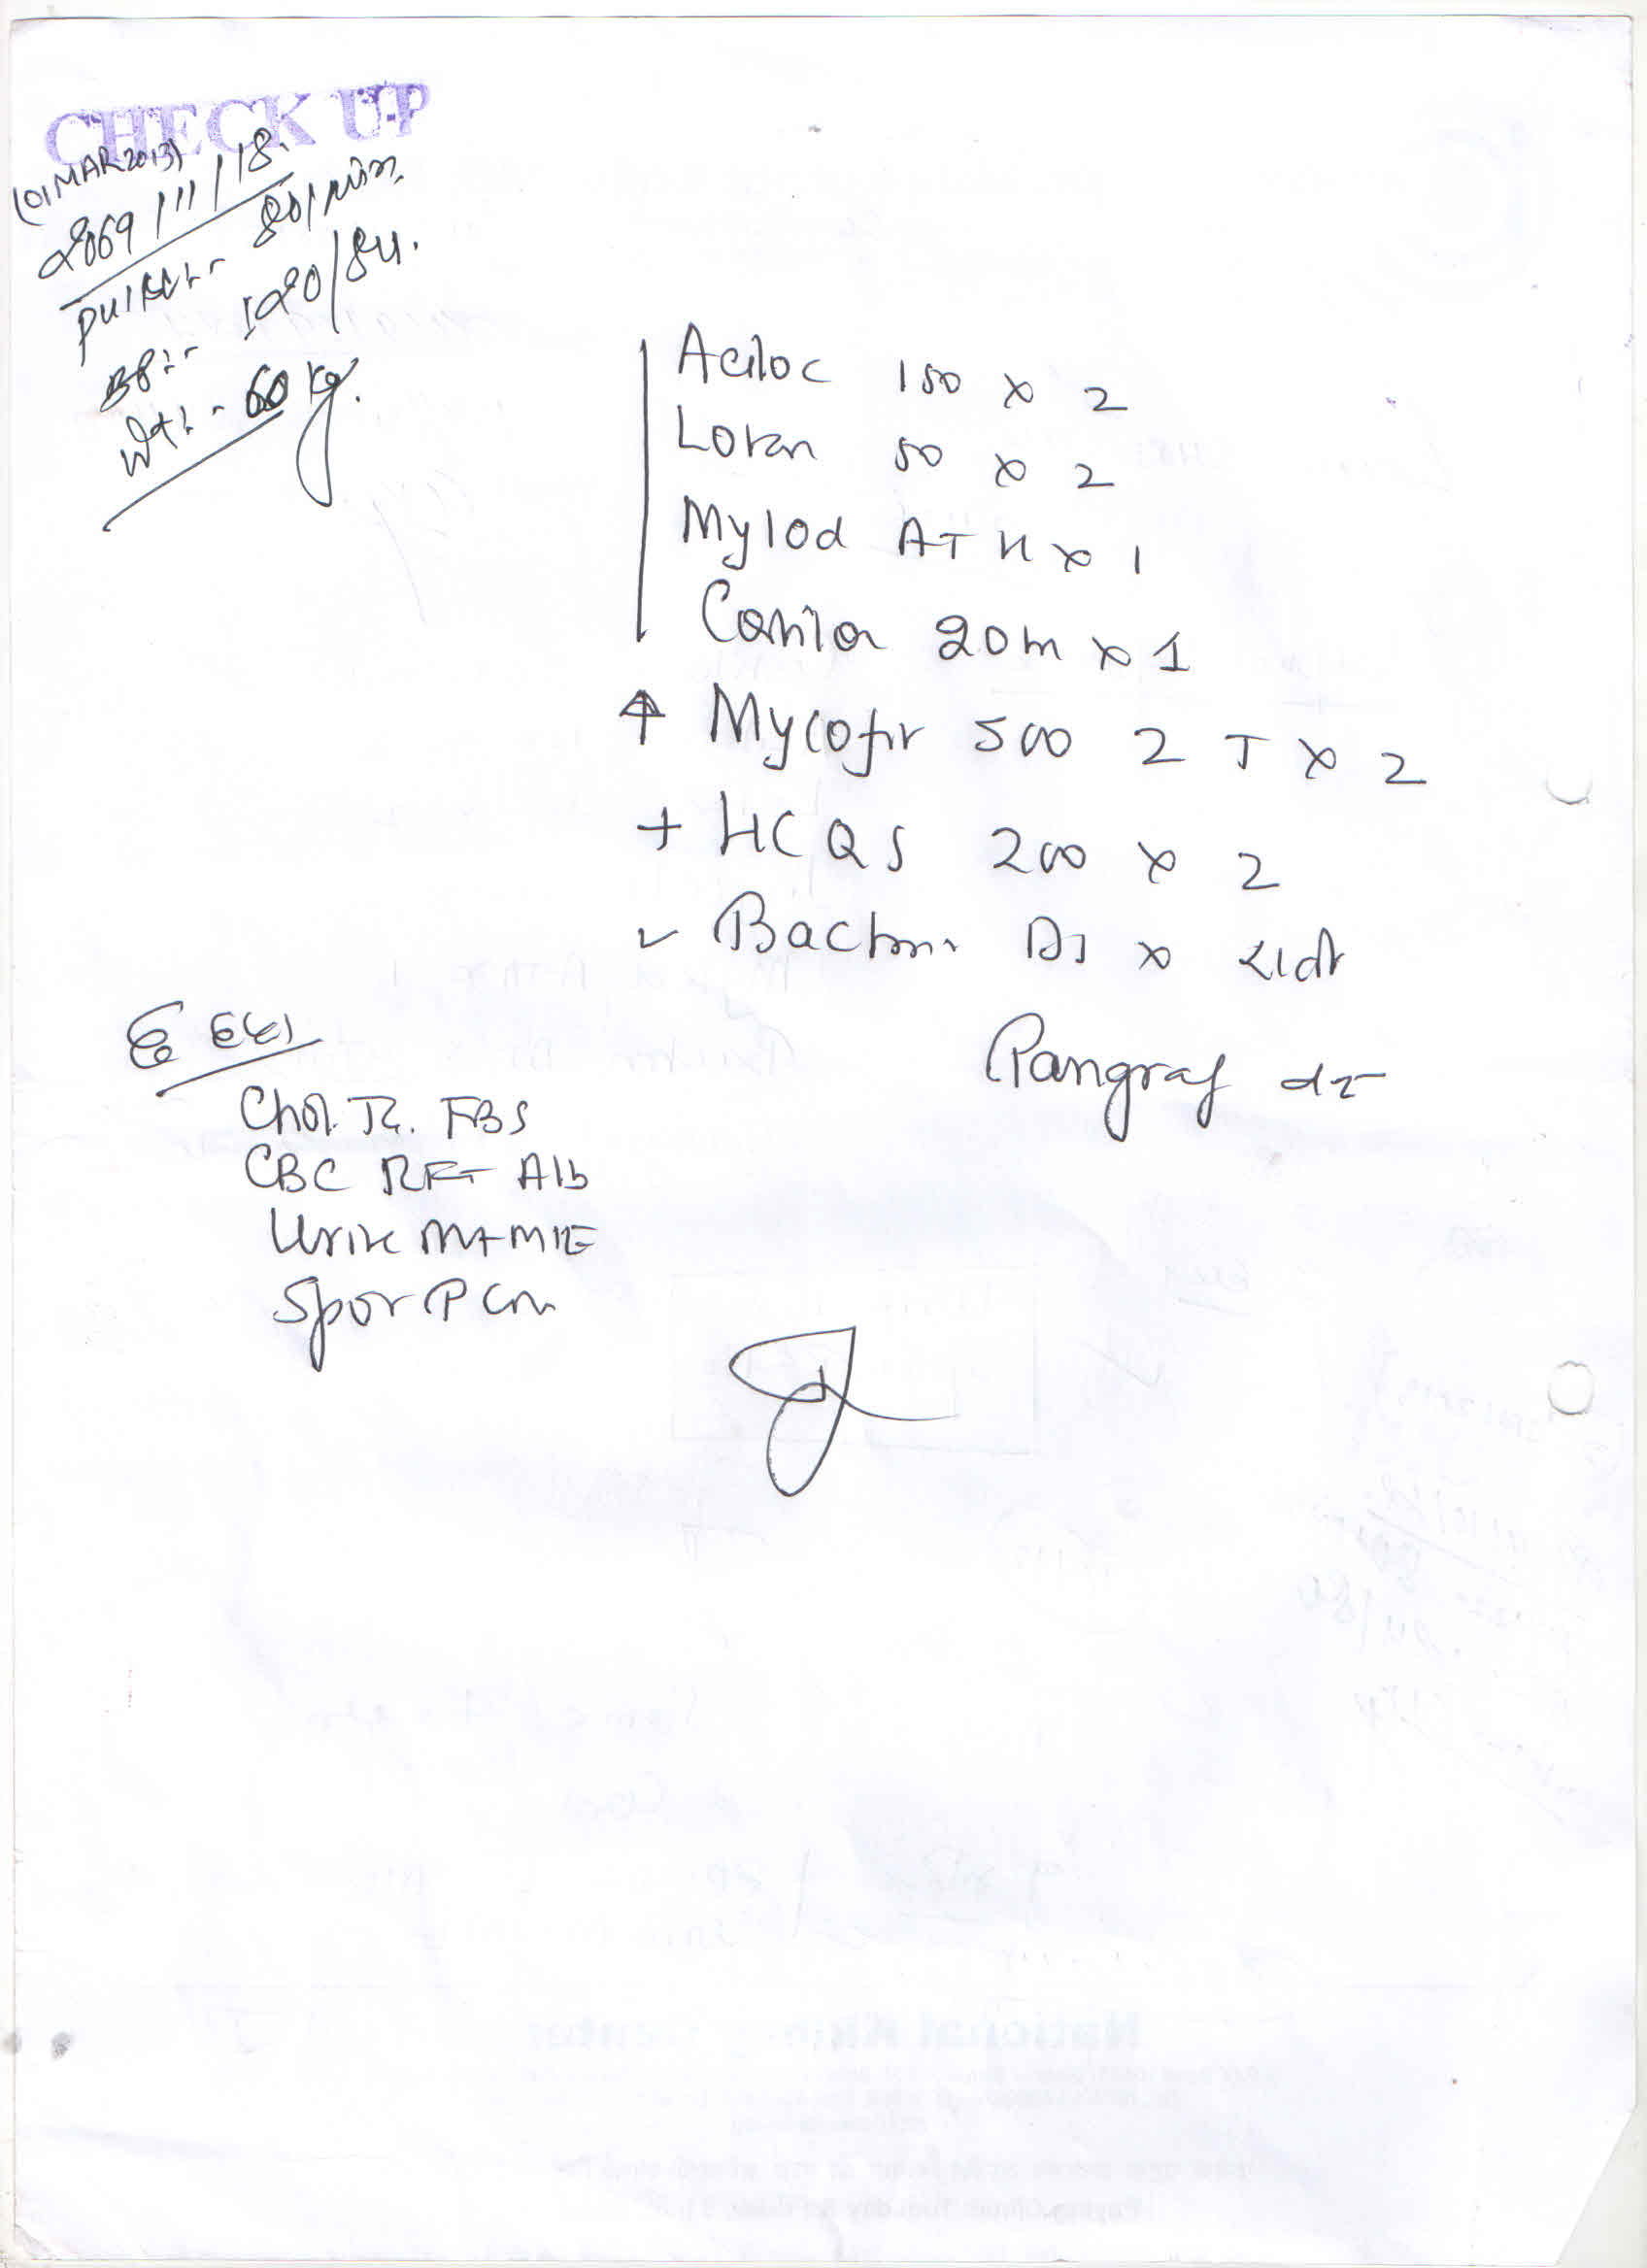 CHECK UP
(01 MAR 2013)
2069/11/18.
80/min.
BP:- 120/84.
Wt:- 60 kg.
Aciloc 150 x 2
50 x 2
Mylod AT H x 1
20m x 1
↑ Mycofit 500 2 T x 2
+ HCQS 200 x 2
DS x
Pangraf
Chol. TG. FBS
CBC RFT Alb
Urine
Spot PCR